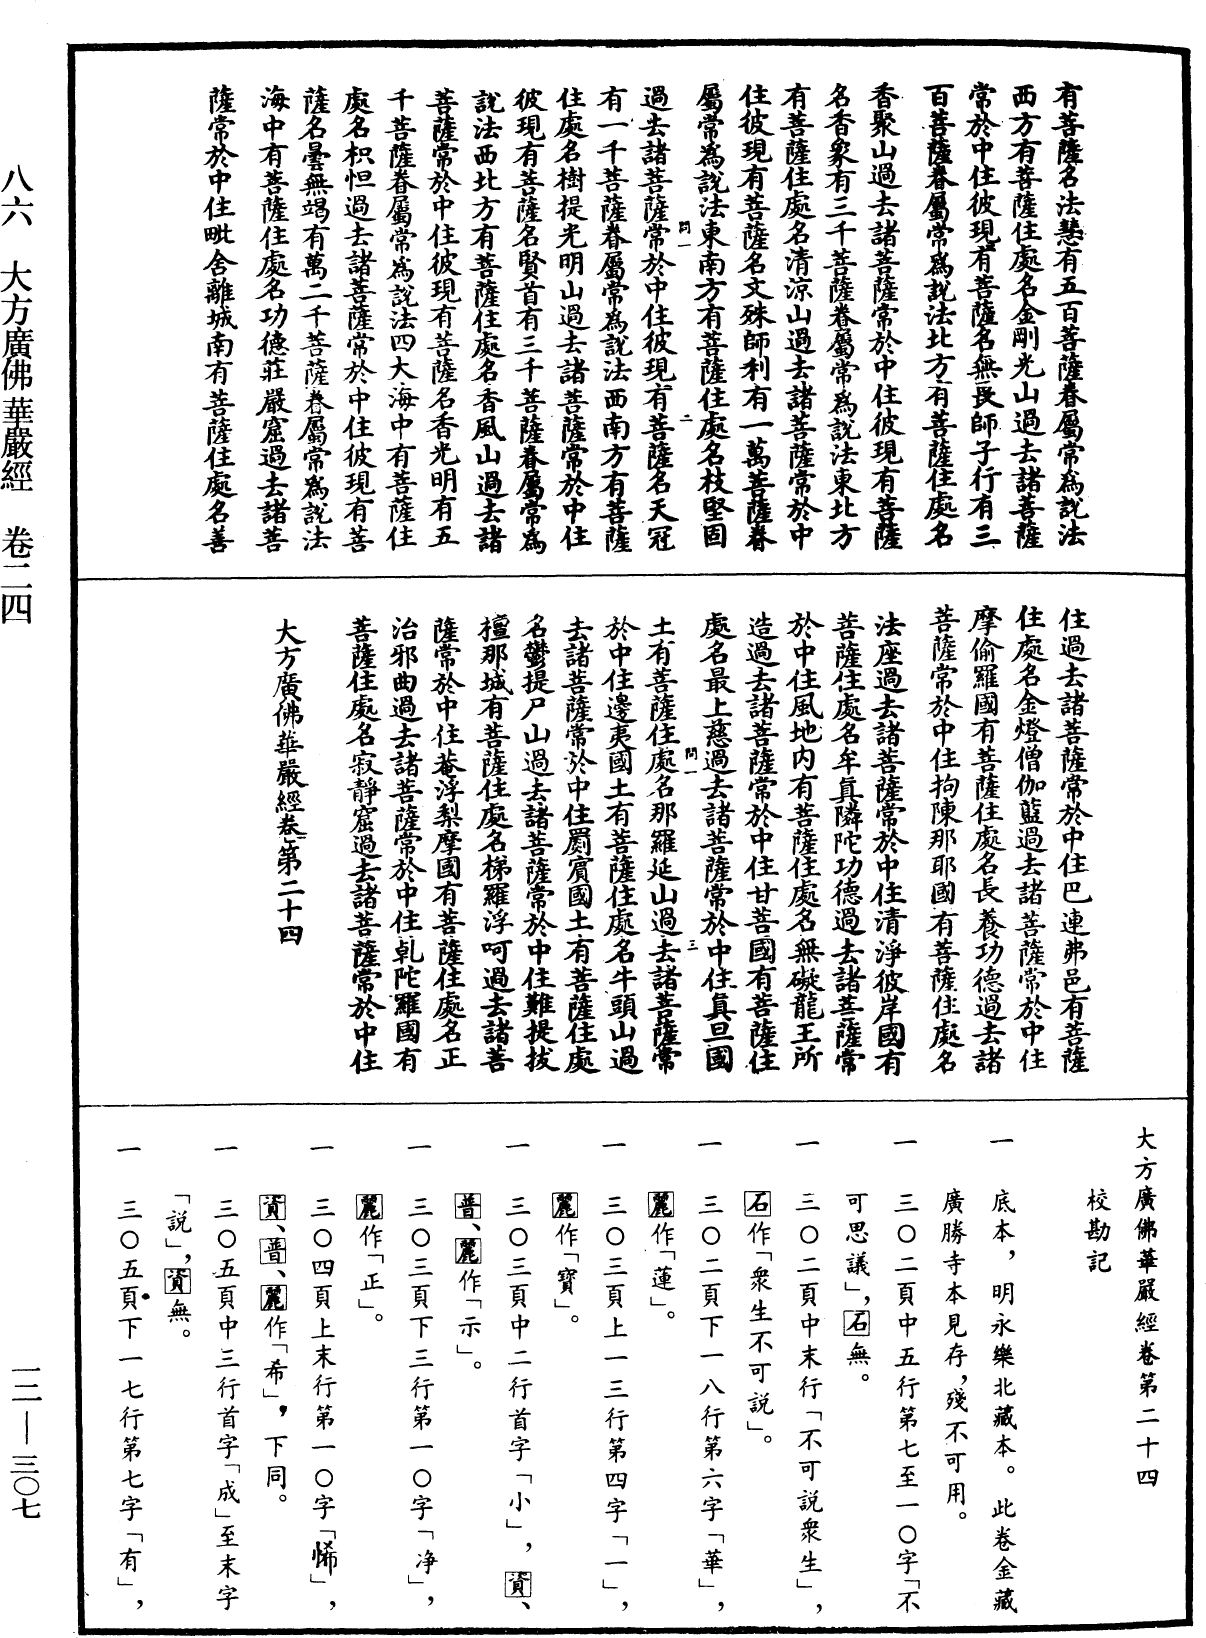 有菩薩名法慧有五百菩薩眷屬常為說法
西方有菩薩住處名金剛光山過去諸菩薩
常於中住彼現有菩薩名無畏師子行有三
百菩薩眷屬常為說法北方有菩薩住處名
香聚山過去諸菩薩常於中住彼現有菩薩
名香象有三千菩薩眷屬常為說法東北方
有菩薩住處名清涼山過去諸菩薩常於中
住彼現有菩薩名文殊師利有一萬菩薩眷
屬常為說法東南方有菩薩住處名枝堅固
過去諸菩薩常於中住彼現有菩薩名天冠
有一千菩薩眷屬常為說法西南方有菩薩
住處名樹提光明山過去諸菩薩常於中住
彼現有菩薩名賢首有三千菩薩眷屬常為
說法西北方有菩薩住處名香風山過去諸
菩薩常於中住彼現有菩薩名香光明有五
千菩薩眷屬常為說法四大海中有菩薩住
處名枳怛過去諸菩薩常於中住彼現有菩
薩名曇無竭有萬二千菩薩眷屬常為說法
海中有菩薩住處名功德莊嚴窟過去諸菩
薩常於中住毗舍離城南有菩薩住處名善
住過去諸菩薩常於中住巴連弗邑有菩薩
住處名金燈僧伽藍過去諸菩薩常於中住
摩偷羅國有菩薩住處名長養功德過去諸
菩薩常於中住拘陳那耶國有菩薩住處名
法座過去諸菩薩常於中住清淨彼岸國有
菩薩住處名牟真隣陀功德過去諸菩薩常
於中住風地內有菩薩住處名無礙龍王所
造過去諸菩薩常於中住甘菩國有菩薩住
處名最上慈過去諸菩薩常於中住真旦國
土有菩薩住處名那羅延山過去諸菩薩常
於中住邊夷國土有菩薩住處名牛頭山過
去諸菩薩常於中住罽賓國土有菩薩住處
名鬱提尸山過去諸菩薩常於中住難提拔
檀那城有菩薩住處名梯羅浮呵過去諸菩
薩常於中住菴浮梨摩國有菩薩住處名正
治邪曲過去諸菩薩常於中住乹陀羅國有
菩薩住處名寂靜窟過去諸菩薩常於中住
大方廣佛華嚴經卷第二十四
大方廣佛華嚴經卷第二十四
校勘記
一 底本，明永樂北藏本。此卷金藏
廣勝寺本見存，殘不可用。
一 三〇二頁中五行第七至一〇字「不
可思議」，石無。
一 三〇二頁中末行「不可説衆生」，
石作「衆生不可説」。
一 三〇二頁下一八行第六字「華」，
麗作「蓮」。
一 三〇三頁上一三行第四字「一」，
麗作「寶」。
一 三〇三頁中二行首字「小」，資、
普、麗作「示」。
一 三〇三頁下三行第一〇字「净」，
麗作「正」。
一 三〇四頁上末行第一〇字「悕」，
資、普、麗作「希」，下同。
一 三〇五頁中三行首字「成」至末字
「説」，資無。
一 三〇五頁下一七行第七字「有」，
八六 大方廣佛華嚴經 卷二四
一二—三〇七